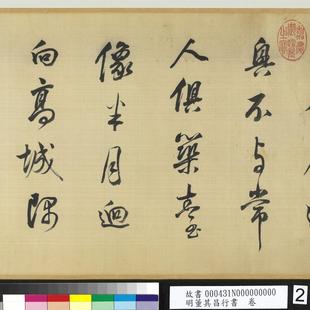 興不与常
人俱築臺
像半月迥
向高城隅
故書 000431N000000000
明董其昌行書 卷
2